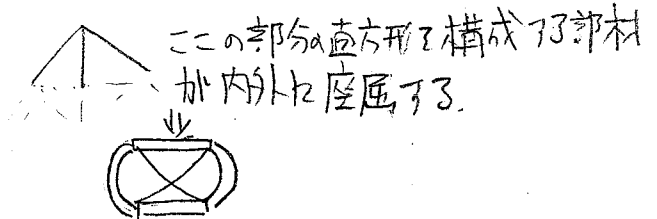 ここの部分の直方形を構成する部材
が内外に座屈する.